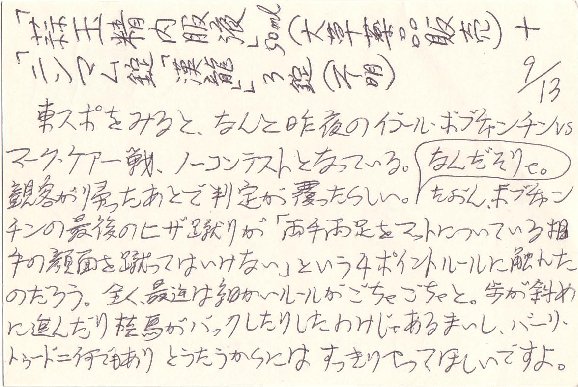 「蒜王精内服液」90ml(大幸薬品販売)+
「ニンマム錠「漢龍」」3錠(不明)
9/13
東スポをみると、なんと昨夜のイゴール・ボブチャンチンVS
マーク・ケアー戦、ノーコンテストとなっている。なんだそりゃ。
観客が帰ったあとで判定が覆ったらしい。たぶん、ボブチャン
チンの最後のヒザ蹴りが「両手両足をマットについている相
手の顔面を蹴ってはいけない」という4ポイントルールに触れた
のだろう。全く最近は細かいルールがごちゃごちゃと。歩が斜め
に進んだり桂馬がバックしたりしたわけじゃあるまいし、バーリ・
トゥード=何でもあり とうたうからには すっきりやってほしいですよ。